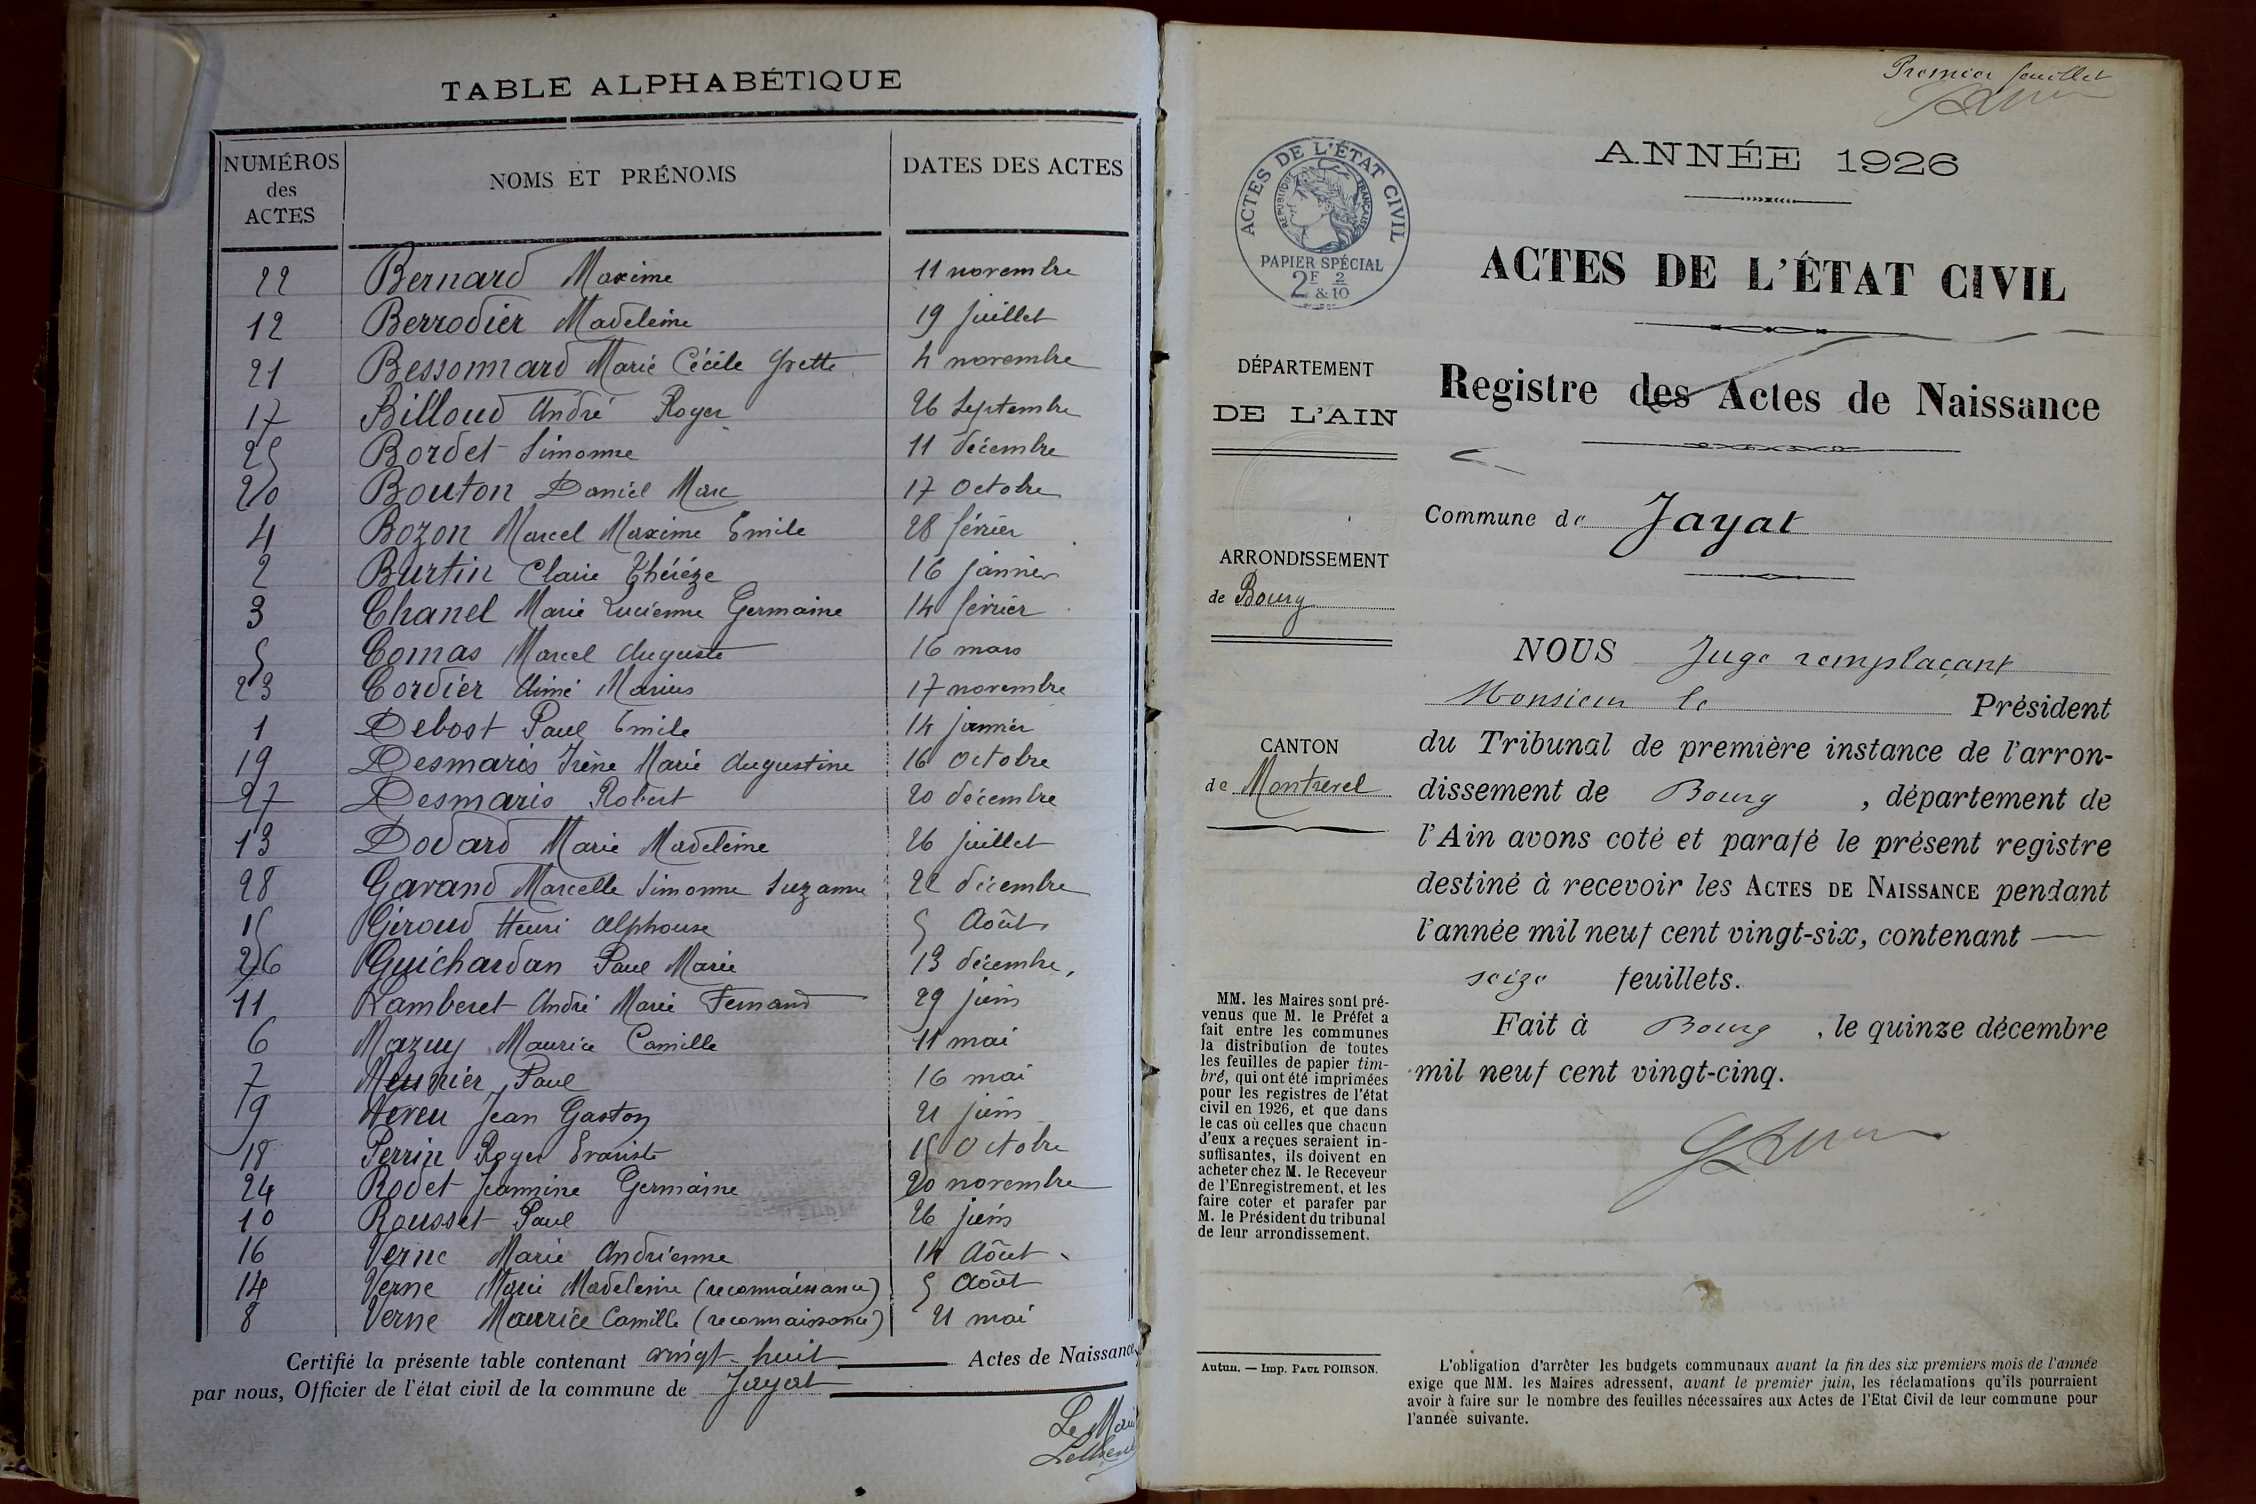 TABLE ALPHABÉTIQUE
NUMÉROS des ACTES NOMS ET PRÉNOMS DATES DES ACTES
22 Bernard Maxime 11 novembre
12 Berrodier Madeleine 19 juillet
21 Bessonnard Marie Cécile Yvette 4 novembre
17 Billoud André Roger 26 Septembre
25 Bordet Simonne 11 décembre
20 Bouton Daniel Marc 17 Octobre
4 Bozon Marcel Maxime Emile 28 février
2 Burtin Claire Thérèze 16 janvier
3 Chanel Marie Lucienne Germaine 14 février
5 Comas Marcel Auguste 16 mars
23 Cordier Aimé Marius 17 novembre
1 Debost Paul Emile 14 janvier
19 Desmaris Irène Marie Augustine 16 Octobre
27 Desmaris Robert 20 décembre
13 Dodard Marie Madeleine 26 juillet
28 Gavand Marcelle Simonne Suzanne 22 décembre
15 Giroud Henri Alphonse 5 Août
26 Guichardan Paul Marie 13 décembre
11 Lamberet André Marie Fernand 29 juin
6 Mazuy Maurice Camille 11 mai
7 Meunier Paul 16 mai
9 Neveu Jean Gaston 21 juin
18 Perrin Roger Evariste 15 Octobre
24 Rodet Jeannine Germaine 20 novembre
10 Rousset Paul 26 juin
16 Verne Marie Andrienne 14 Août
14 Verne Marie Madeleine (reconnaissance) 5 Août
8 Verne Maurice Camille (reconnaissance) 21 mai
Certifié la présente table contenant vingt-huit Actes de Naissance
par nous, Officier de l'état civil de la commune de Jayat
Le Mai
Premier feuillet
ANNÉE 1926
ACTES DE L'ÉTAT CIVIL
RÉPUBLIQUE FRANÇAISE
PAPIER SPÉCIAL
2F & 2/10
ACTES DE L'ÉTAT CIVIL
Registre des Actes de Naissance
DÉPARTEMENT
DE L'AIN
Commune de Jayat
ARRONDISSEMENT
de Bourg
CANTON
de Montrevel
NOUS Juge remplaçant
Monsieur le Président
du Tribunal de première instance de l'arron-
dissement de Bourg , département de
l'Ain avons coté et parafé le présent registre
destiné à recevoir les ACTES DE NAISSANCE pendant
l'année mil neuf cent vingt-six, contenant
seize feuillets.
Fait à Bourg , le quinze décembre
mil neuf cent vingt-cinq.
MM. les Maires sont pré-
venus que M. le Préfet a
fait entre les communes
la distribution de toutes
les feuilles de papier tim-
bré, qui ont été imprimées
pour les registres de l'état
civil en 1926, et que dans
le cas où celles que chacun
d'eux a reçues seraient in-
suffisantes, ils doivent en
acheter chez M. le Receveur
de l'Enregistrement, et les
faire coter et parafer par
M. le Président du tribunal
de leur arrondissement.
Autun. — Imp. PAUL POIRSON.
L'obligation d'arrêter les budgets communaux avant la fin des six premiers mois de l'année
exige que MM. les Maires adressent, avant le premier juin, les réclamations qu'ils pourraient
avoir à faire sur le nombre des feuilles nécessaires aux Actes de l'Etat Civil de leur commune pour
l'année suivante.